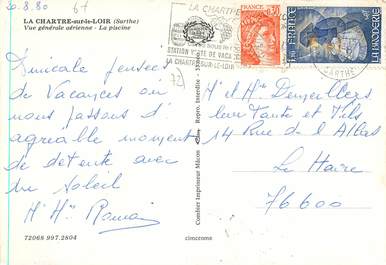 20.8.80
67
LA CHARTRE-sur-le-LOIR (Sarthe)
Vue générale aérienne - La piscine
LA CHARTRE
STATION VERTE DE VACA
LA CHARTRE SUR LE LOIR
SARTHE
0,30
FRANCE
LA BRODERIE
72
Amicale pensée
de Vacances où
nous passons d'
agréable moments
de détente avec
du soleil
Mr Mme Romain
72068 997.2804
Combier Imprimeur Mâcon
Repro. Interdite
cimcroma
Mr et Mme
leur Tante et Fils
14 Rue de l'
Le Havre
76600